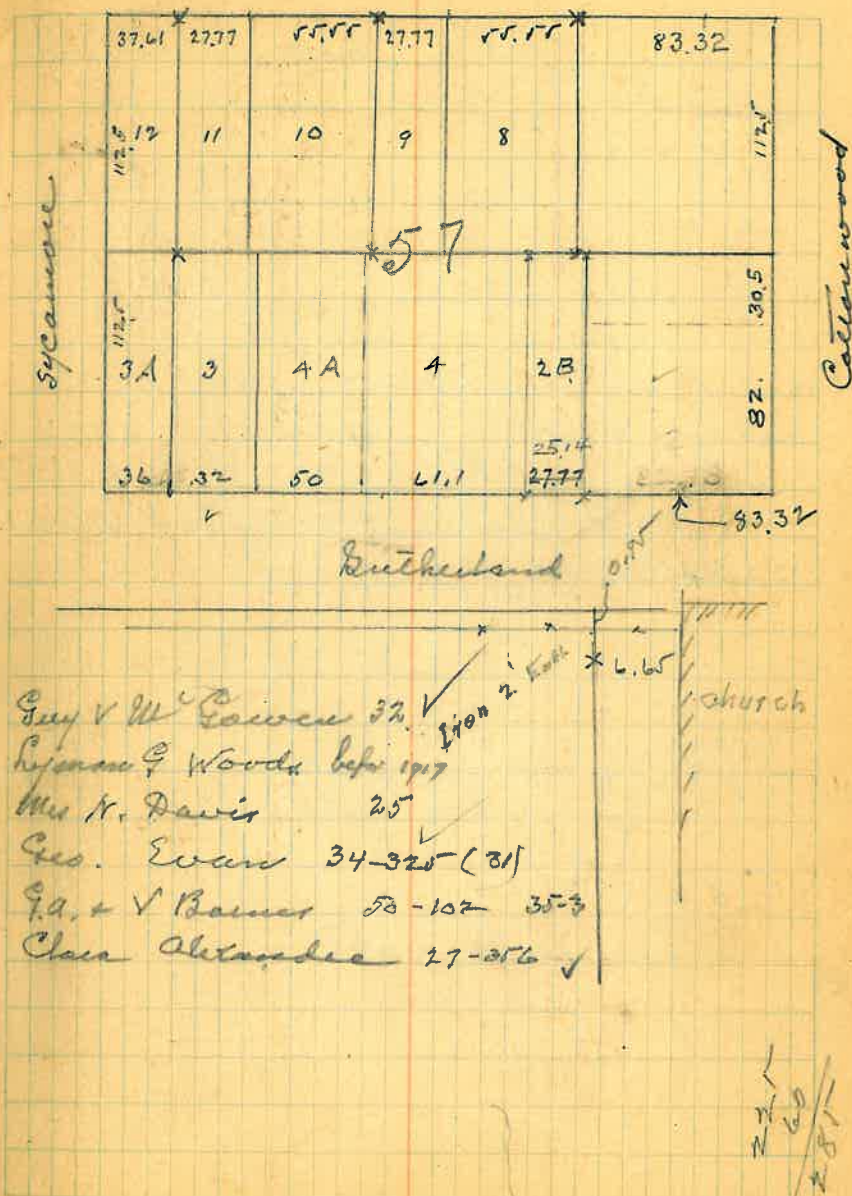 37.61 27.77 55.55 27.77 55.55 83.32
112.5 12 11 10 9 8 112.5
Sycamore
Cottonwood
57
112.5 30.5
3A 3 4A 4 2B 82.
25.14
36 32 50 61.1 27.77
83.32
Sutherland
6.65
church
Iron 2"
Guy V McGowen 32
Lyman G Woods befor 1917
Mrs N. Davis 25
Geo. Evans 34-325 (31)
G.A. & V Barnes 50-102 35-3
Clara Alexander 27-356
225
60
285